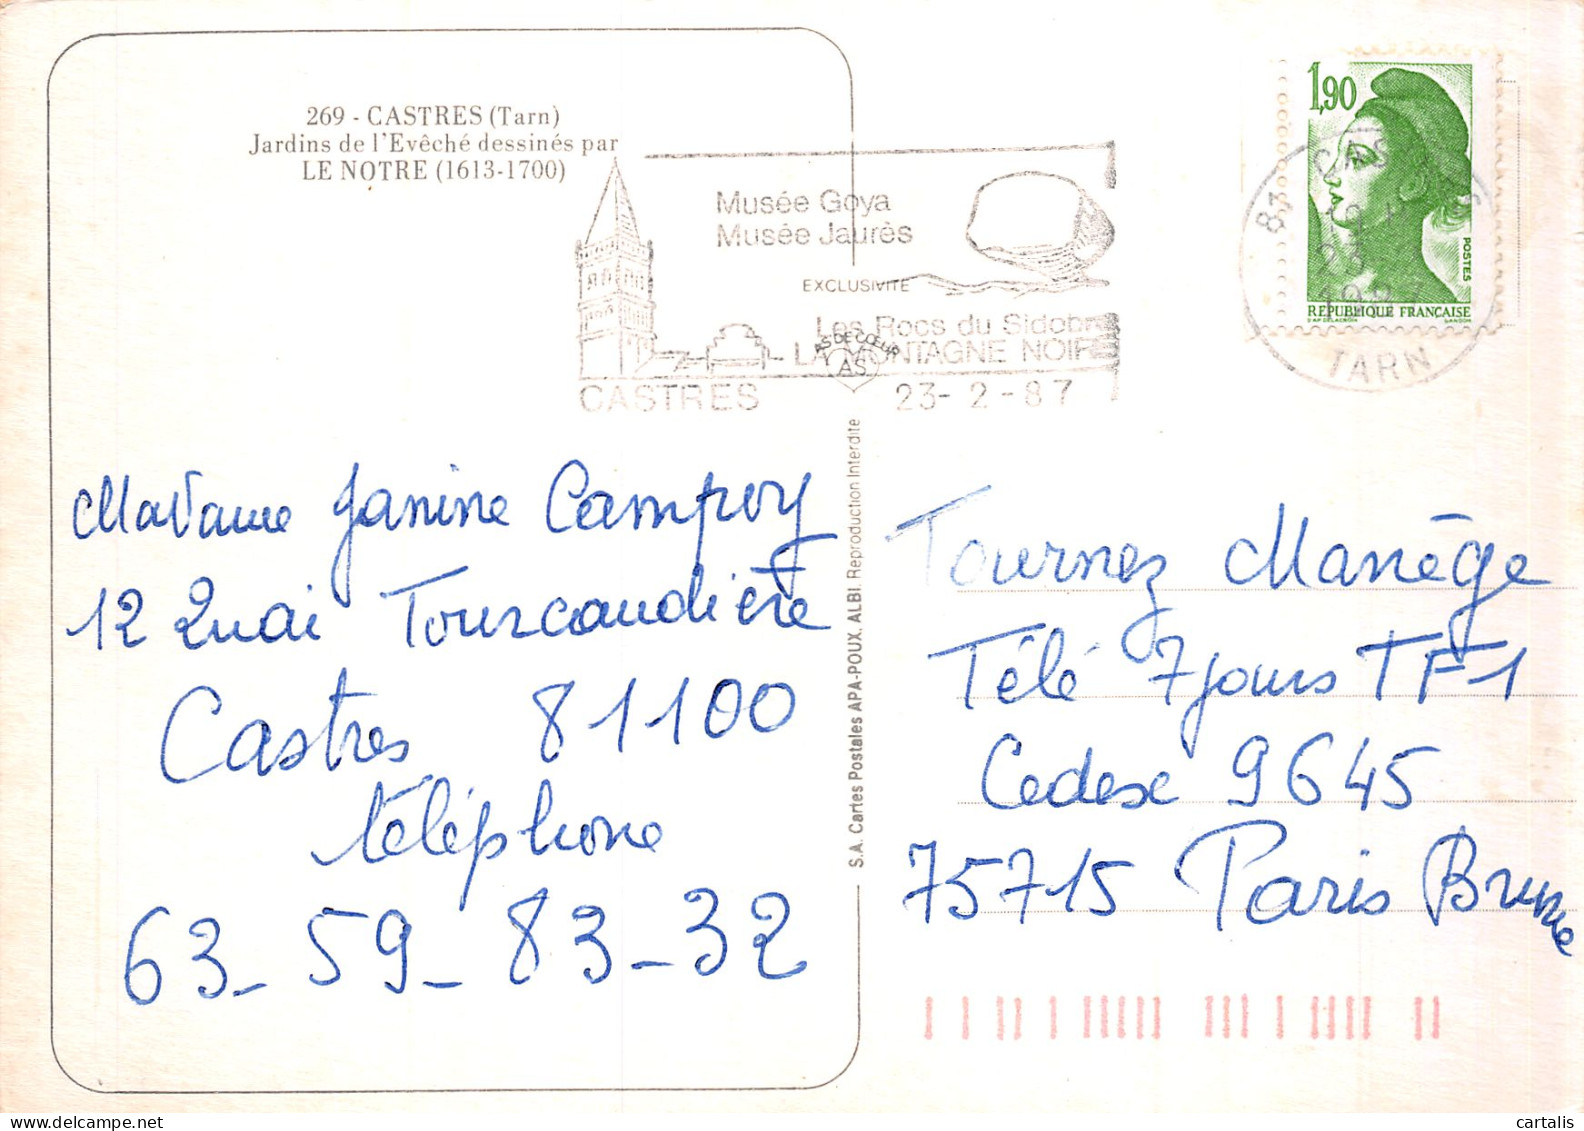 269 - CASTRES (Tarn)
Jardins de l'Evêché dessinés par
LE NOTRE (1613-1700)
Musée Goya
Musée Jaurès
EXCLUSIVITE
Les Rocs du Sidobre
AS DE CŒUR
LA MONTAGNE NOIRE
AS
CASTRES 23-2-87
1,90
POSTES
REPUBLIQUE FRANÇAISE
D'AP DELACROIX GANDON
81 CASTRES
23
1987
TARN
Madame Janine Campoy
12 Quai Tourcaudière
Castres 81100
téléphone
63_59_83_32
S.A. Cartes Postales APA-POUX, ALBI. Reproduction Interdite
Tournez Manège
Télé 7 jours TF1
Cedex 9645
75715 Paris Brune
cartalis